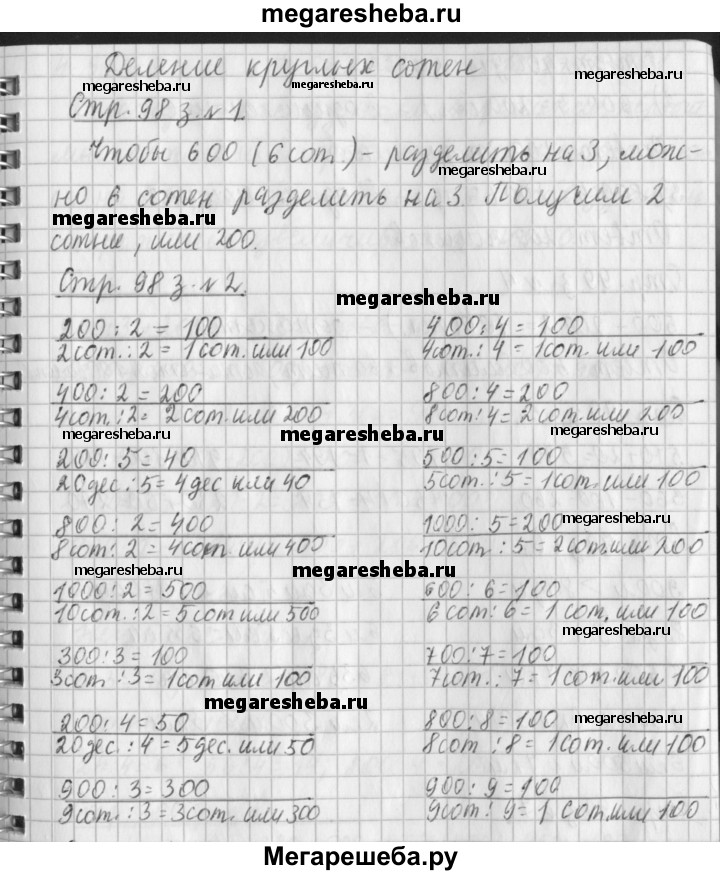 megaresheba.ru
Деление круглых сотен
megaresheba.ru
megaresheba.ru
megaresheba.ru
Стр. 98 з. №1.
Чтобы 600 (6 сот.) - разделить на 3, мож-
megaresheba.ru
но 6 сотен разделить на 3. Получим 2
megaresheba.ru
сотне, или 200.
Стр. 98 з. №2.
megaresheba.ru
200 : 2 = 100
2 сот. : 2 = 1 сот. или 100
400 : 2 = 200
4 сот. : 2 = 2 сот. или 200
megaresheba.ru
megaresheba.ru
200 : 5 = 40
20 дес. : 5 = 4 дес или 40
800 : 2 = 400
8 сот. : 2 = 4 сот. или 400
megaresheba.ru
1000 : 2 = 500
10 сот. : 2 = 5 сот или 500
300 : 3 = 100
3 сот. : 3 = 1 сот или 100
megaresheba.ru
200 : 4 = 50
20 дес. : 4 = 5 дес. или 50
900 : 3 = 300
9 сот. : 3 = 3 сот. или 300
400 : 4 = 100
4 сот. : 4 = 1 сот. или 100
800 : 4 = 200
8 сот : 4 = 2 сот. или 200
megaresheba.ru
500 : 5 = 100
5 сот. : 5 = 1 сот. или 100
1000 : 5 = 200
megaresheba.ru
10 сот. : 5 = 2 сот. или 200
600 : 6 = 100
6 сот : 6 = 1 сот, или 100
megaresheba.ru
700 : 7 = 100
7 сот. : 7 = 1 сот. или 100
800 : 8 = 100
megaresheba.ru
8 сот : 8 = 1 сот. или 100
900 : 9 = 100
9 сот : 9 = 1 сот. или 100
Мегарешеба.ру